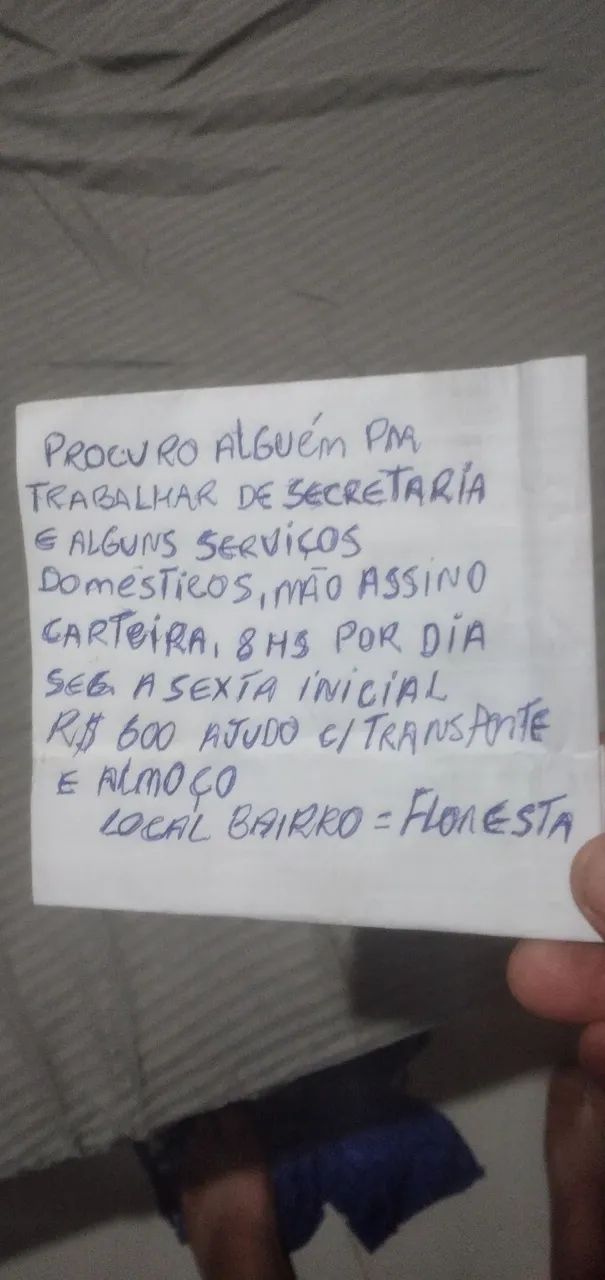 PROCURO ALGUÉM PRA
TRABALHAR DE SECRETARIA
E ALGUNS SERVIÇOS
DOMÉSTICOS, NÃO ASSINO
CARTEIRA, 8 HS POR DIA
SEG. A SEXTA INICIAL
R$ 600 AJUDO C/ TRANSPORTE
E ALMOÇO
LOCAL BAIRRO = FLORESTA